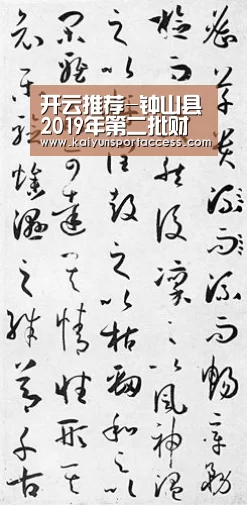 开云推荐–钟山县
2019年第二批财
www.kaiyunsportaccess.com
密草貴流而流而暢章務
檢而然後凜之以風神溫
之以潤鼓之以枯勁和之以
閑雅可達其情性形其
哀樂驗燥濕之殊節千古